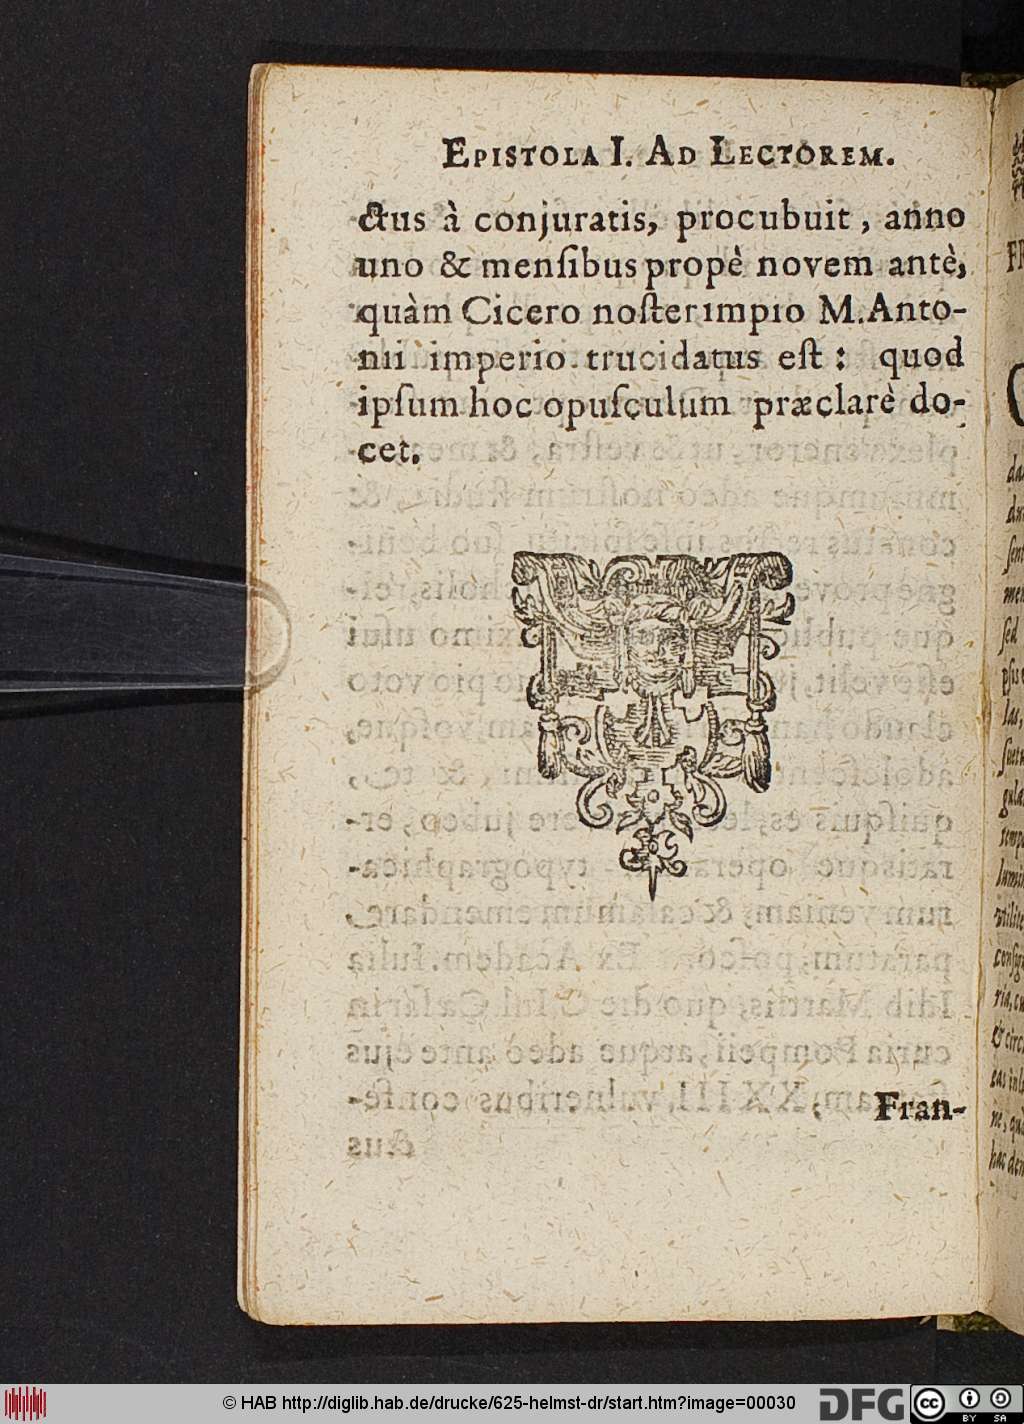 EPISTOLA I. AD LECTOREM.
ctus à conjuratis, procubuit, anno
uno & menſibus propè novem antè,
quàm Cicero noſter impio M. Anto-
nii imperio trucidatus eſt: quod
ipſum hoc opuſculum præclarè do-
cet.
Fran-
© HAB http://diglib.hab.de/drucke/625-helmst-dr/start.htm?image=00030
DFG
cc BY SA